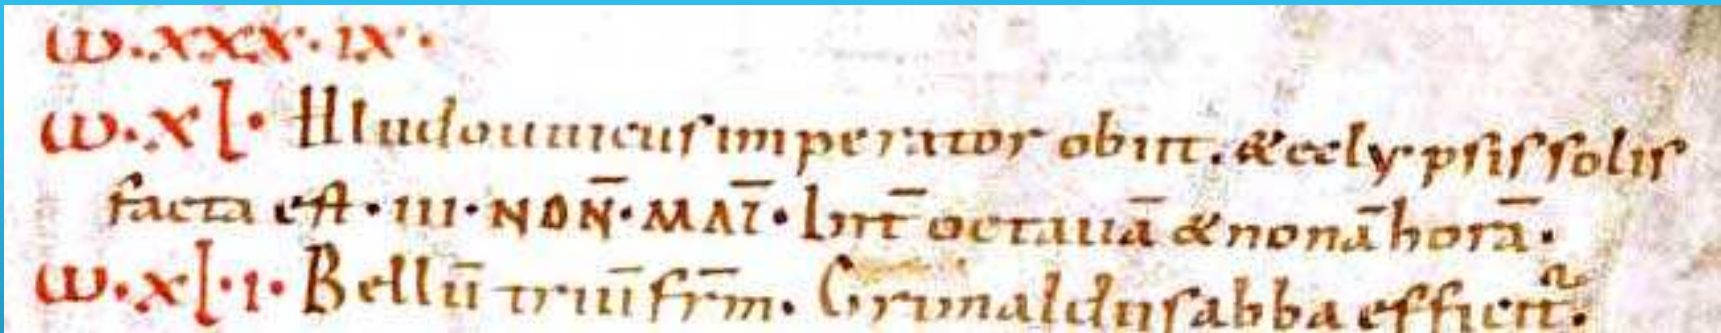 ω·xxx·ix·
ω·xl· Hludouuicus imperator obiit. & eclypsis solis
facta est·iii·NON̄·MAĪ· Int̄ octauā & nonā horā·
ω·xl·i· Bellū triū fr̄m. Grimaldus abba efficit᷑.